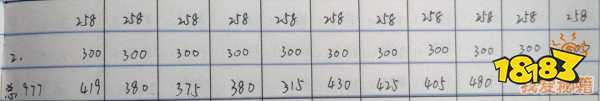 258 258 258 258 258 258 258 258 258 258 258
2. 300 300 300 300 300 300 300 300 300 300
总977 419 380 375 380 315 430 425 405 480
18183